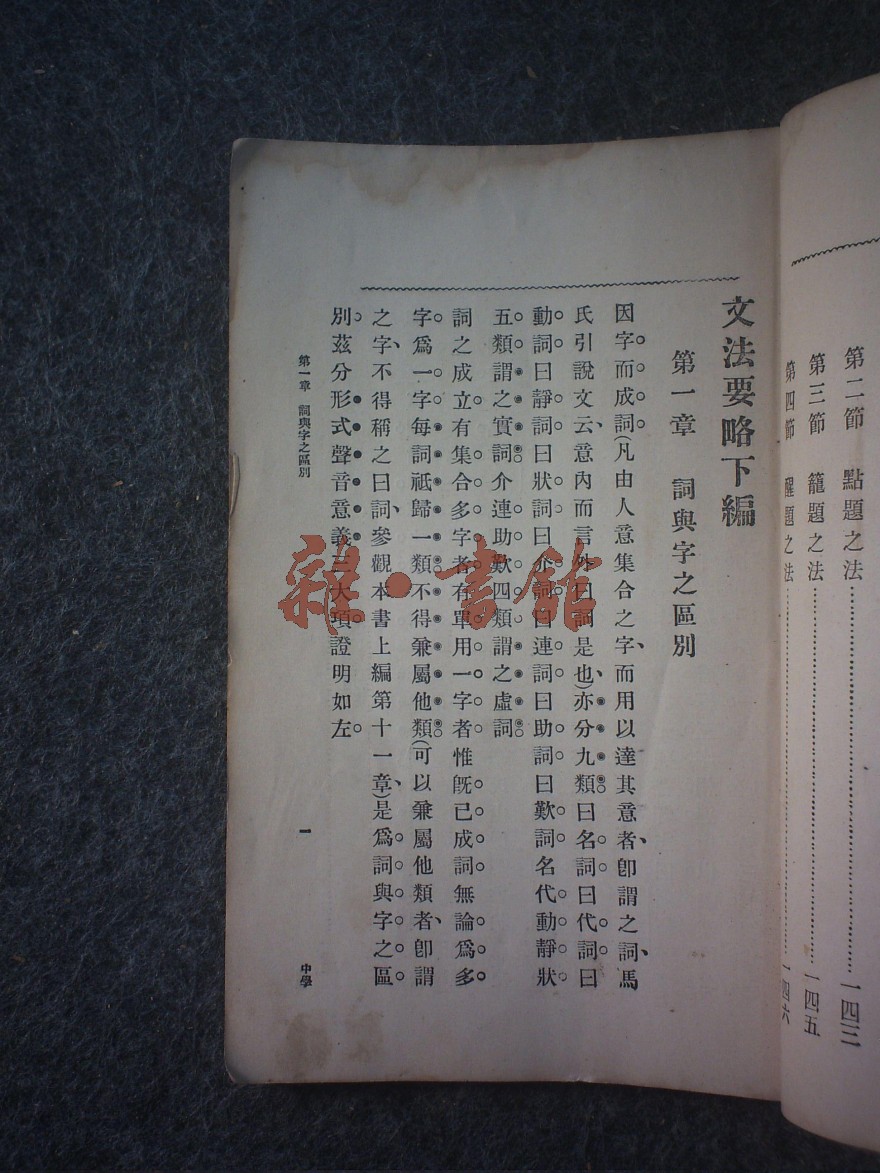 第二節　點題之法……………一四三
第三節　籠題之法……………一四五
第四節　醒題之法……………一四六
文法要略下編
第一章　詞與字之區別
因字而成詞(凡由人意集合之字、而用以達其意者、卽謂之詞、馬
氏引說文云、意內而言外曰詞是也)亦分九類曰名詞曰代詞曰
動詞曰靜詞曰狀詞曰介詞曰連詞曰助詞曰歎詞名代動靜狀
五類謂之實詞介連助歎四類謂之虛詞
詞之成立有集合多字者有單用一字者惟旣已成詞無論爲多
字爲一字每詞祗歸一類不得兼屬他類(可以兼屬他類者、卽謂
之字、不得稱之曰詞、參觀本書上編第十一章)是爲詞與字之區
別茲分形式聲音意義三大項證明如左
第一章　詞與字之區別
一
中學
雜·書館